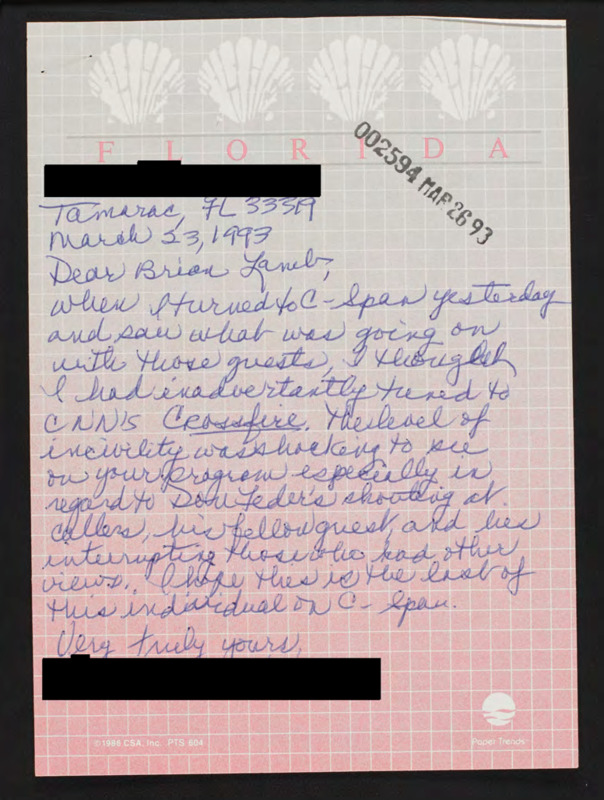 FLORIDA
002594 MAR 26 93
Tamarac, FL 33319
March 23, 1993
Dear Brian Lamb,
When I turned to C-Span yesterday
and saw what was going on
with those guests, I thought
I had inadvertantly tuned to
CNN's Crossfire. The level of
incivility was shocking to see
on your program especially in
regard to Don Feder's shouting at
callers, his fellow guest, and his
interrupting those who had other
views. I hope this is the last of
this individual on C-Span.
Very truly yours,
©1986 CSA, Inc. PTS 604
Paper Trends